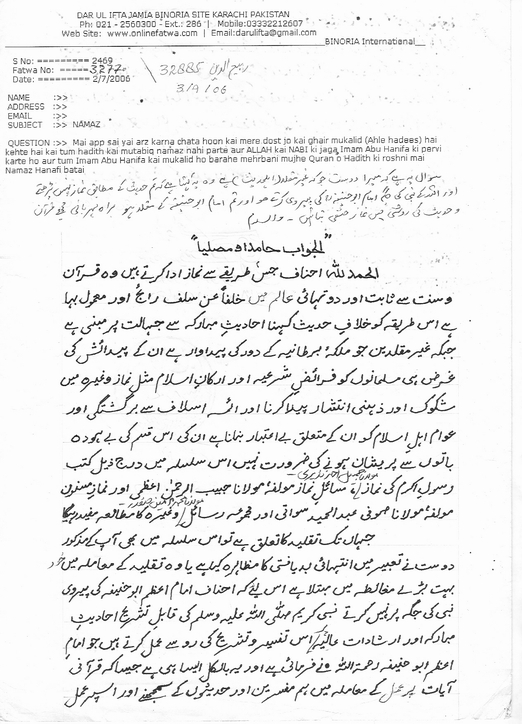 DAR UL IFTA JAMIA BINORIA SITE KARACHI PAKISTAN
Ph: 021 - 2560300 - Ext.: 286 | Mobile:03332212607
Web Site: www.onlinefatwa.com | Email:darulifta@gmail.com
BINORIA International
S No: ========= 2469
Fatwa No: ===== 3277
Date: ========= 2/7/2006
32885
3/9/06
NAME :>>
ADDRESS :>>
EMAIL :>>
SUBJECT :>> NAMAZ
QUESTION :>> Mai app sai yai arz karna chata hoon kai mere dost jo kai ghair mukalid (Ahle hadees) hai
kehte hai kai tum hadith kai mutabiq namaz nahi parte aur ALLAH kai NABI ki jaga Imam Abu Hanifa ki pervi
karte ho aur tum Imam Abu Hanifa kai mukalid ho barahe mehrbani mujhe Quran o Hadith ki roshni mai
Namaz Hanafi batai
سوال یہ ہے کہ میرا دوست جو کہ غیر مقلد (اہلحدیث) ہے وہ کہتا ہے کہ تم حدیث کے مطابق نماز نہیں پڑھتے
اور اللہ کے نبی کی جگہ امام ابو حنیفہ کی پیروی کرتے ہو اور تم امام ابو حنیفہ کے مقلد ہو براہ مہربانی مجھے قرآن
و حدیث کی روشنی میں نماز حنفی بتائیں ۔ والسلام
"الجواب حامدا و مصلیا"
الحمد للہ احناف جس طریقے سے نماز ادا کرتے ہیں وہ قرآن
و سنت سے ثابت اور دو تہائی عالم میں خلفاً عن سلف رائج اور معمول بہا
ہے اس طریقہ کو خلافِ حدیث کہنا احادیثِ مبارکہ سے جہالت پر مبنی ہے
جبکہ غیر مقلدین جو ملکۂ برطانیہ کے دور کی پیداوار ہے ان کے پیدائش کی
غرض ہی مسلمانوں کو فرائضِ شرعیہ اور ارکانِ اسلام مثل نماز وغیرہ میں
شکوک اور ذہنی انتشار پیدا کرنا اور ائمہ اسلاف سے برگشتگی اور
عوام اہلِ اسلام کو ان کے متعلق بے اعتبار بنانا ہے ان کی اس قسم کی بے ہودہ
باتوں سے پریشان ہونے کی ضرورت نہیں اس سلسلہ میں درج ذیل کتب
رسولِ اکرم کی نماز، مسائلِ نماز مولفہ مولانا حبیب الرحمٰن اعظمی اور نماز مسنون
مولفہ مولانا صوفی عبد الحمید سواتی اور مجموعہ رسائل وغیرہ کا مطالعہ مفید رہیگا
جہاں تک تقلید کا تعلق ہے تو اس سلسلہ میں بھی آپ کے مذکور
دوست نے تعبیر میں انتہائی بددیانتی کا مظاہرہ کیا ہے یا وہ تقلید کے معاملہ میں خود
بہت بڑے مغالطہ میں مبتلا ہے اس لیے کہ احناف امام اعظم ابو حنیفہ کی پیروی
نبی کی جگہ پر نہیں کرتے نبی کریم صلی اللہ علیہ وسلم کی قابلِ تشریح احادیثِ
مبارکہ اور ارشاداتِ عالیہ اس تفسیر و تشریح کی رو سے عمل کرتے ہیں جو امام
اعظم ابو حنیفہ رحمۃ اللہ نے فرمائی ہے اور یہ بالکل ایسا ہی ہے جیسا کہ قرآنی
آیات پر عمل کے معاملہ میں ہم مفسرین اور حدیثوں کے سمجھنے اور اس پر عمل